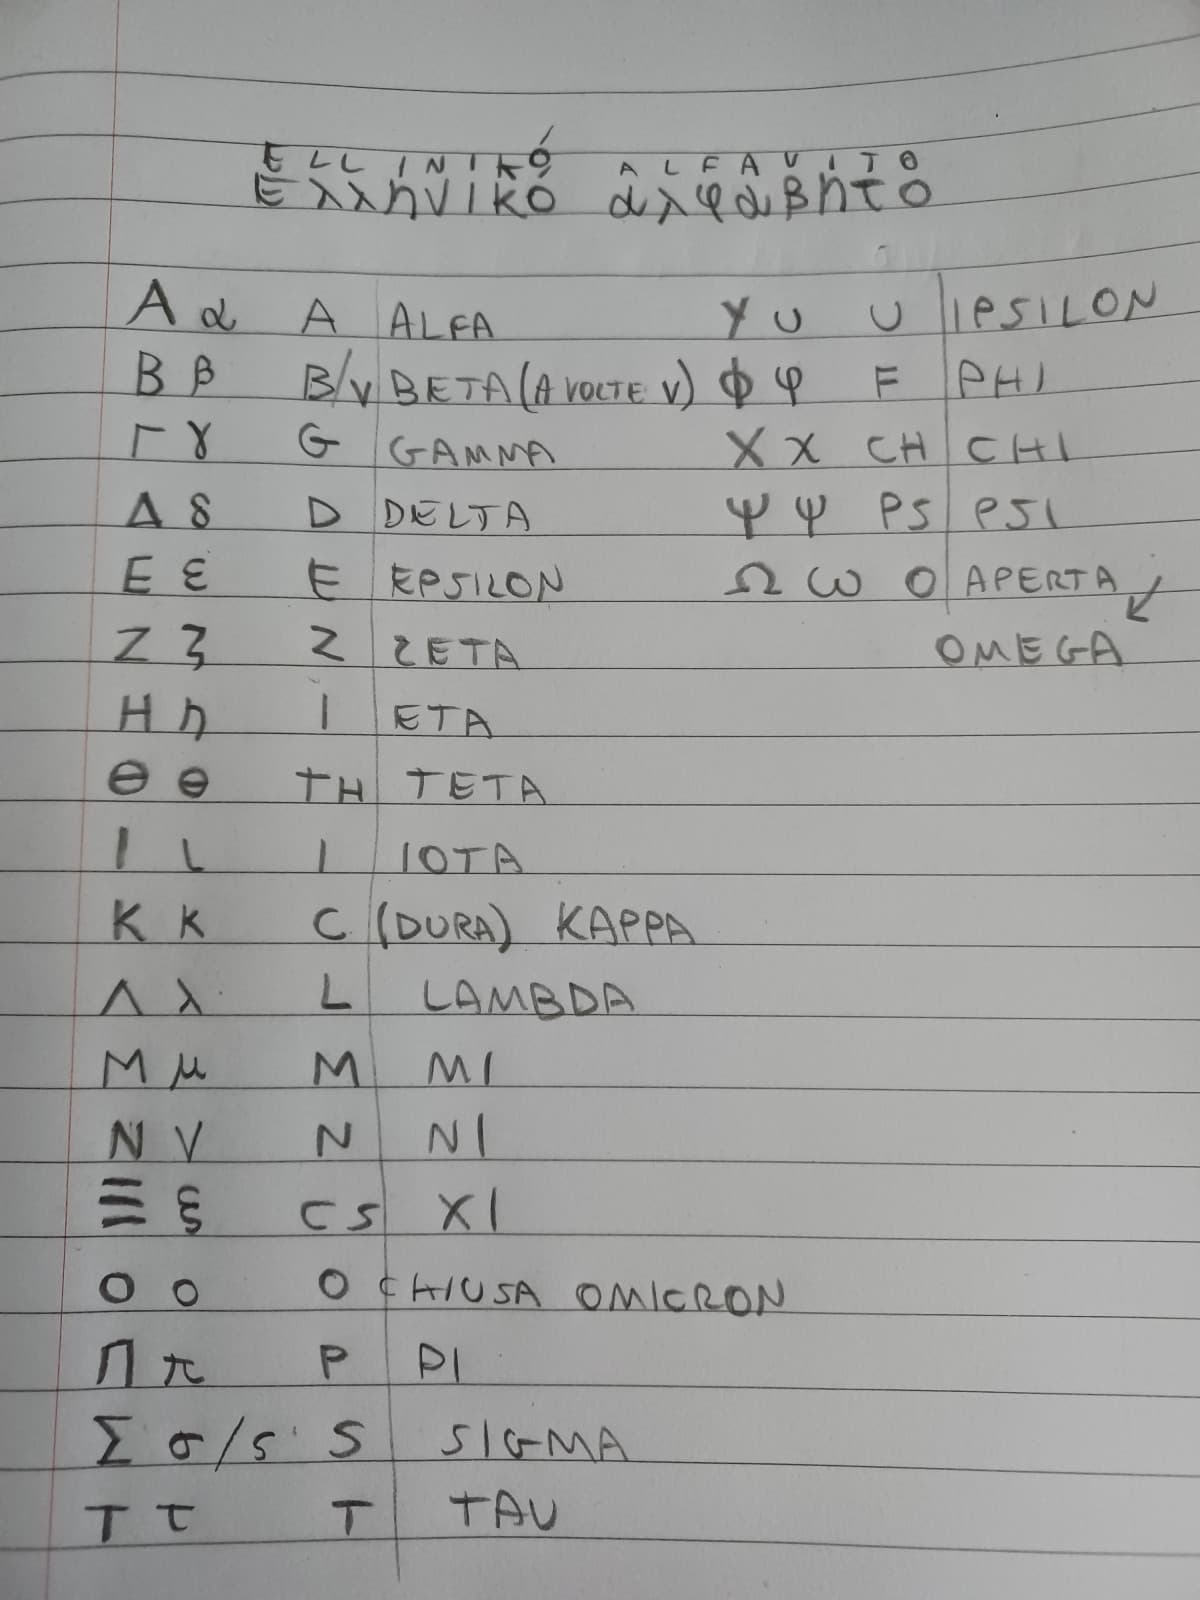 ELLINIKÓ ALFAVITO
Ελληνικό αλφαβητο
Α α A ALFA
Β β B/V BETA (A VOLTE V)
Γ γ G GAMMA
Δ δ D DELTA
Ε ε E EPSILON
Ζ ζ Z ZETA
Η η I ETA
Θ θ TH TETA
Ι ι I IOTA
Κ κ C (DURA) KAPPA
Λ λ L LAMBDA
Μ μ M MI
Ν ν N NI
Ξ ξ CS XI
Ο ο O CHIUSA OMICRON
Π π P PI
Σ σ/ς S SIGMA
Τ τ T TAU
Υ υ U IPSILON
Φ φ F PHI
Χ χ CH CHI
Ψ ψ PS PSI
Ω ω O APERTA
OMEGA